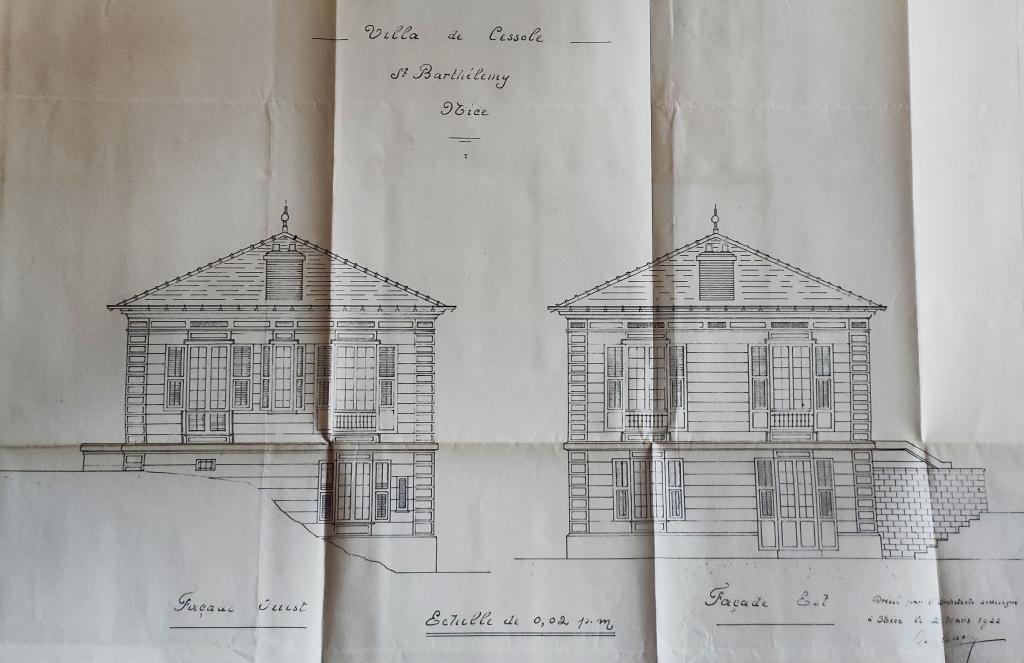 Villa de Cessole
St Barthélemy
Nice
Façade Ouest
Façade Est
Echelle de 0,02 p.m
Dressé par l'architecte soussigné
à Nice le 2 Mars 1922